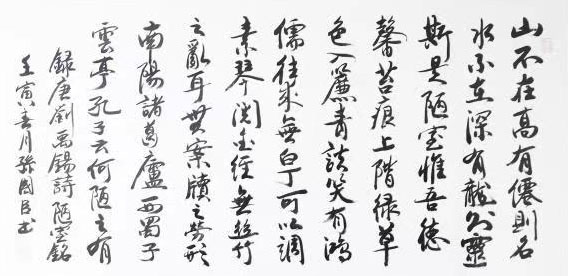 山不在高有僊則名
水不在深有龍則靈
斯是陋室惟吾德
馨苔痕上階綠草
色入簾青談笑有鴻
儒往來無白丁可以調
素琴閱金經無絲竹
之亂耳無案牘之勞形
南陽諸葛廬西蜀子
雲亭孔子云何陋之有
錄唐劉禹錫詩陋室銘
壬寅春月孫國臣书